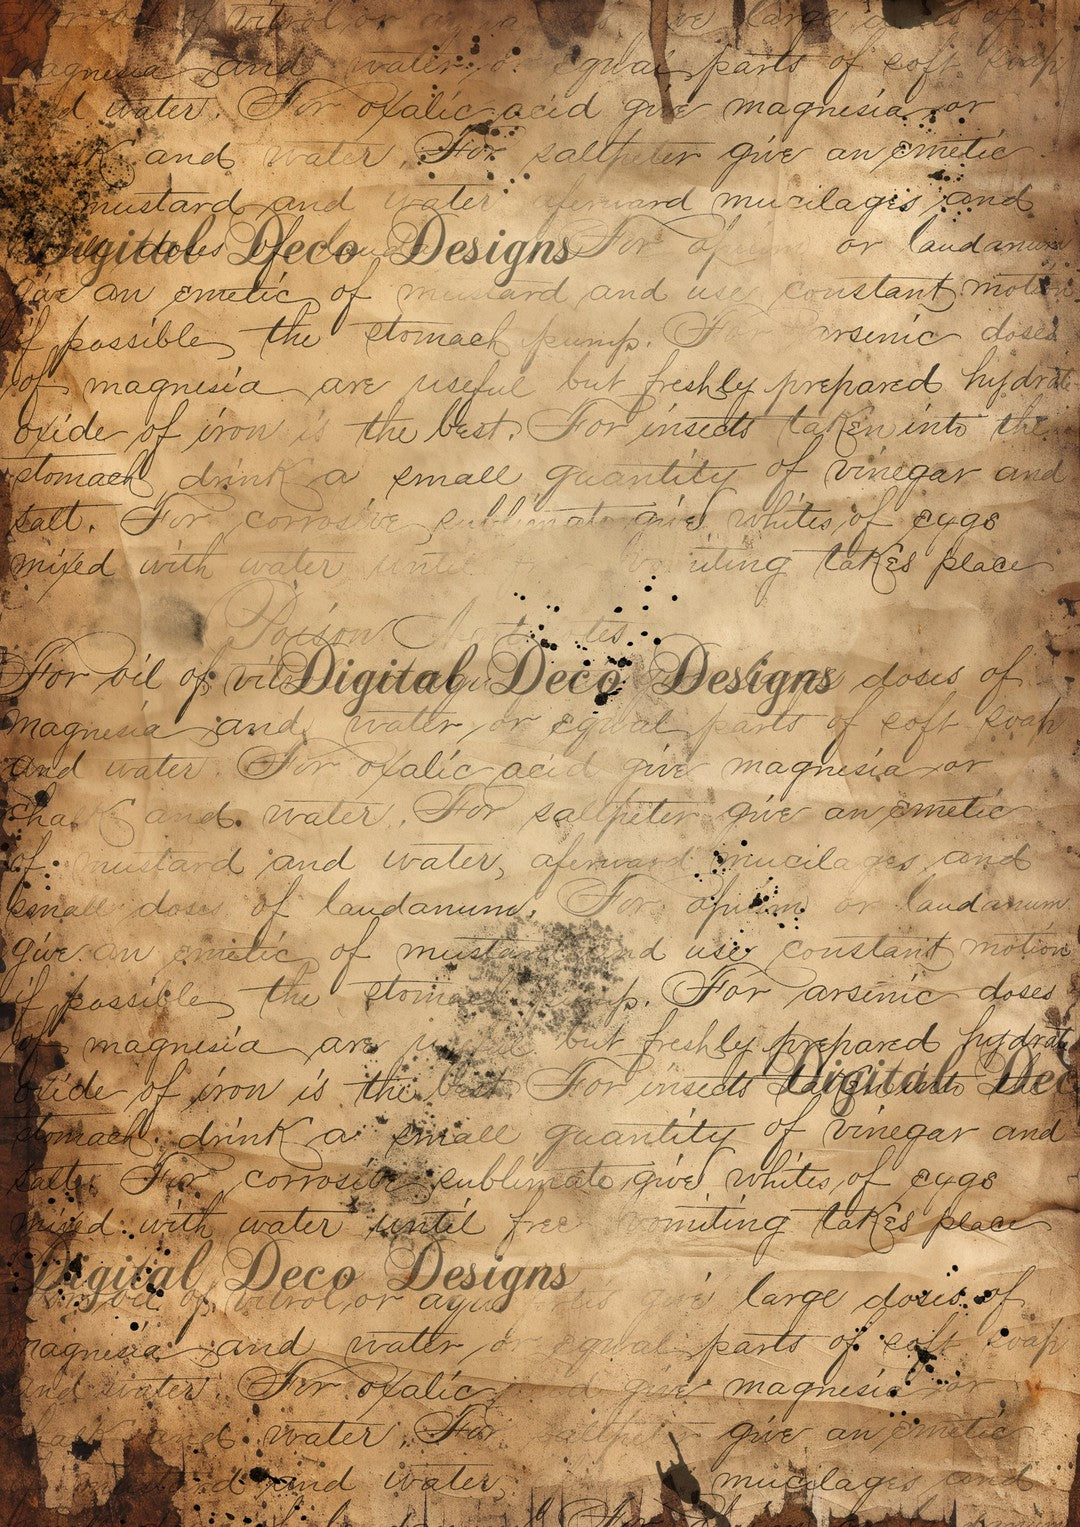 For oil of vitrol, or aqua give large doses of
magnesia and water, or equal parts of soft soap
and water. For oxalic acid give magnesia or
and water. For saltpeter give an emetic
mustard and water aferward mucilages and
small doses of lauda For opium or laudanum
Digital Deco Designs
give an emetic of mustard and use constant motion
if possible the stomach pump. For arsenic doses
of magnesia are useful but freshly prepared hydrate
oxide of iron is the best. For insects taken into the
stomach drink a small quantity of vinegar and
salt. For corrosive sublimate give whites of eggs
mixed with water until vomiting takes place
Poison Antidotes
For oil of doses of
Digital Deco Designs
magnesia and water, or equal parts of soft soap
and water. For oxalic acid give magnesia or
chalk and water. For saltpeter give an emetic
of mustard and water, aferward mucilages and
small doses of laudanum. For opium or laudanum
give an emetic of mustard and use constant motion
if possible the stomach pump. For arsenic doses
of magnesia are useful but freshly prepared hydrate
Digital Dec
oxide of iron is the best. For insects taken into the
stomach drink a small quantity of vinegar and
salt. For corrosive sublimate give whites of eggs
mixed with water until free vomiting takes place
Digital Deco Designs
For oil of vitrol, or aqua give large doses of
magnesia and water or equal parts of soft soap
and water. For oxalic acid give magnesia or
chalk and water. For saltpeter give an emetic
mustard and water, mucilages and